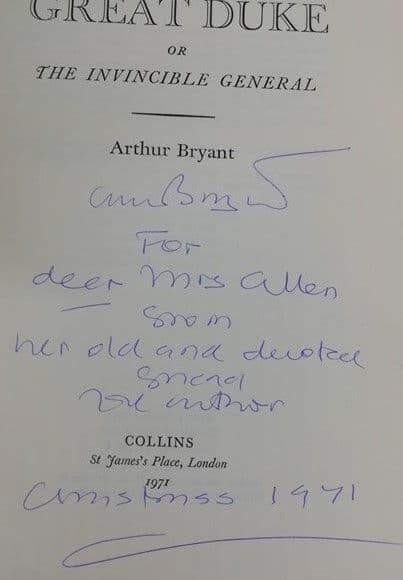 GREAT DUKE
OR
THE INVINCIBLE GENERAL
Arthur Bryant
Arthur Bryant
For
dear Mrs Allen
from
her old and devoted
friend
The author
COLLINS
St James's Place, London
1971
Christmas 1971